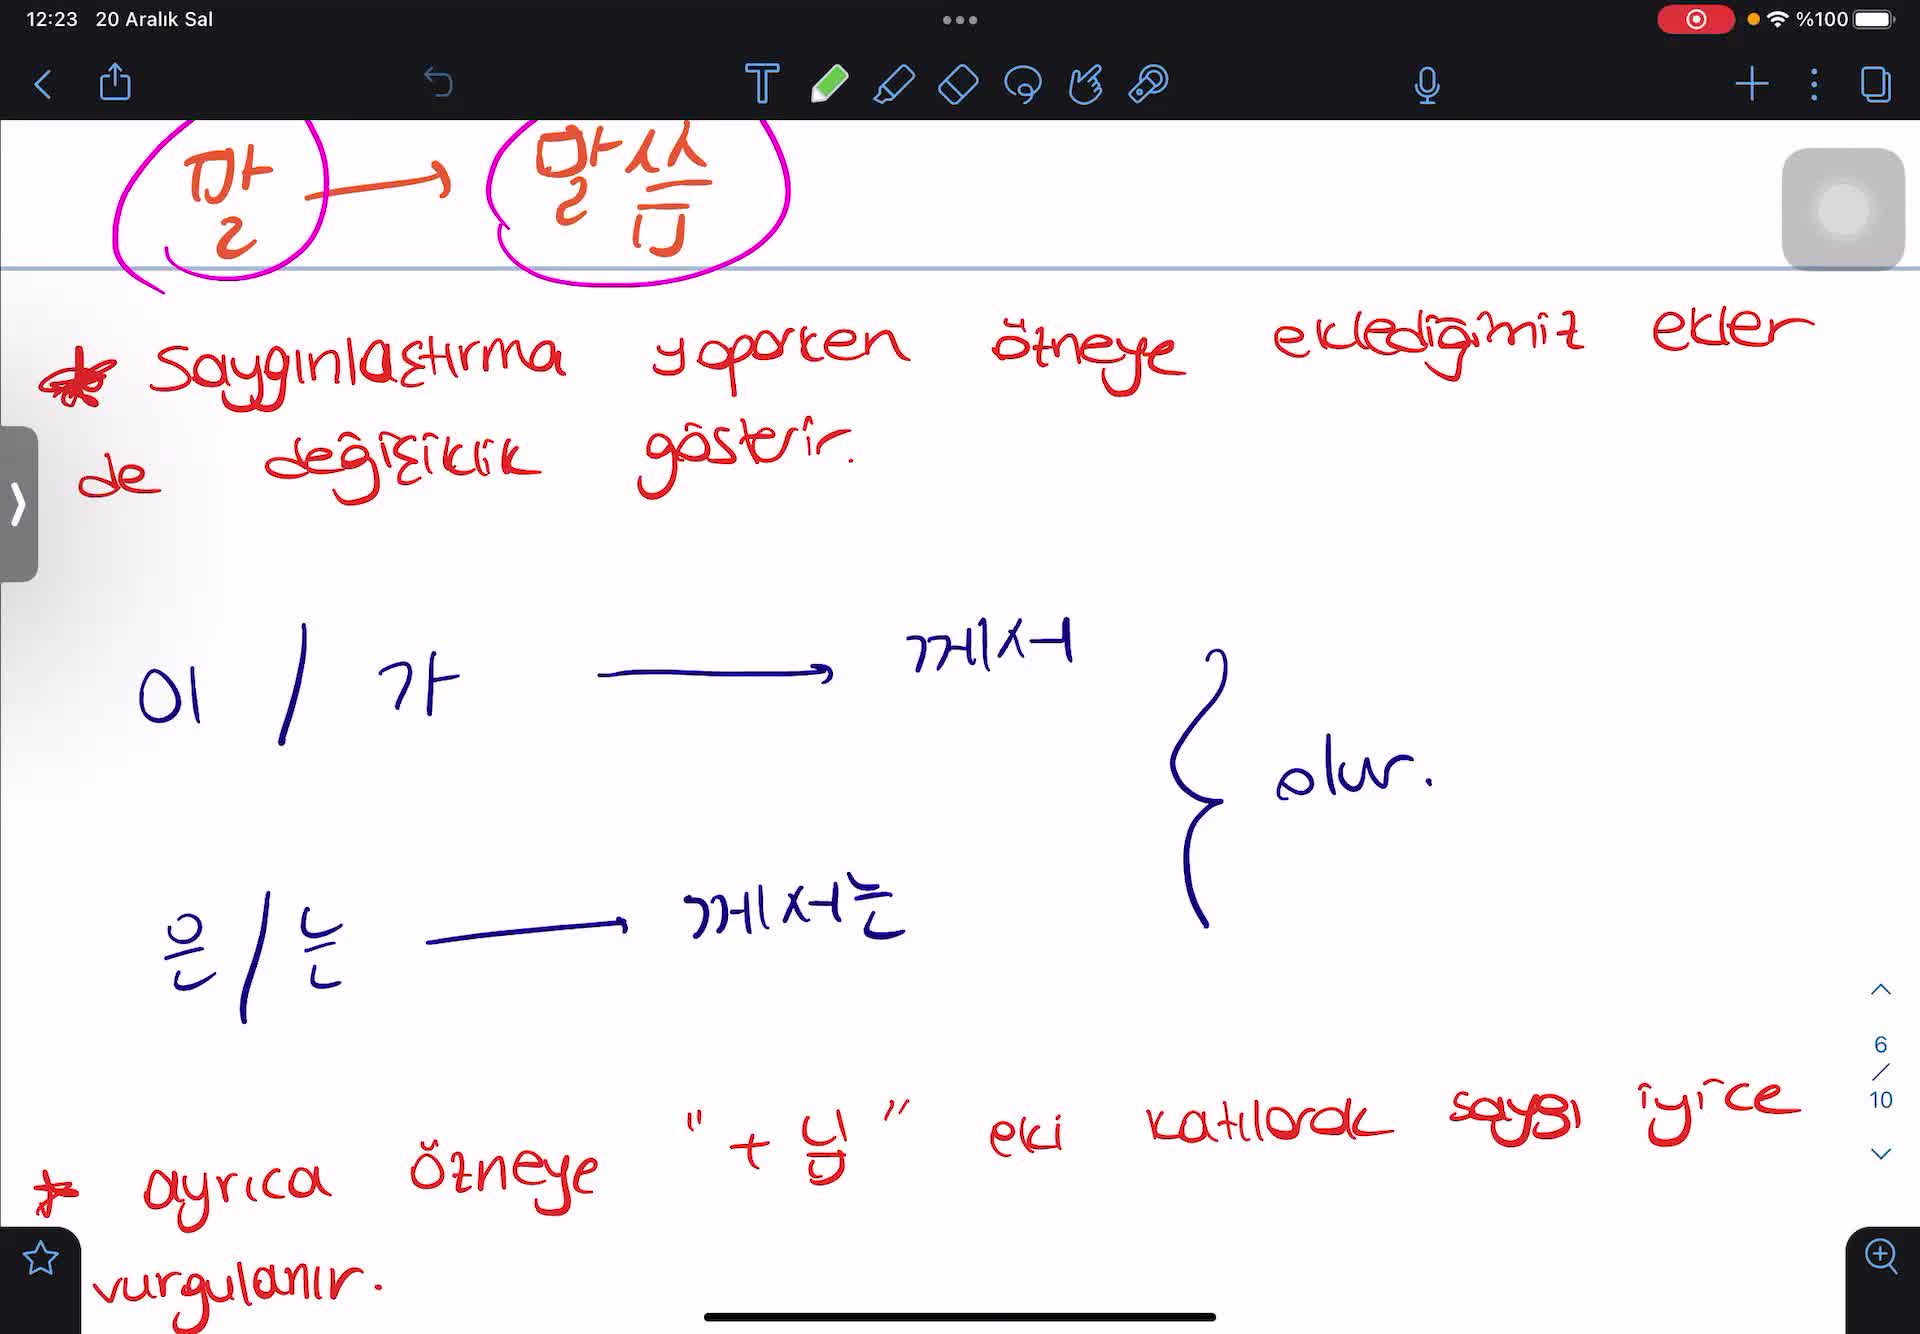 12:23 20 Aralık Sal
%100
말 → 말씀
* Saygınlaştırma yaparken özneye eklediğimiz ekler
de değişiklik gösterir.
이 / 가 → 께서
olur.
은 / 는 → 께서는
6
/
10
* ayrıca özneye "+님" eki katılarak saygı iyice
vurgulanır.